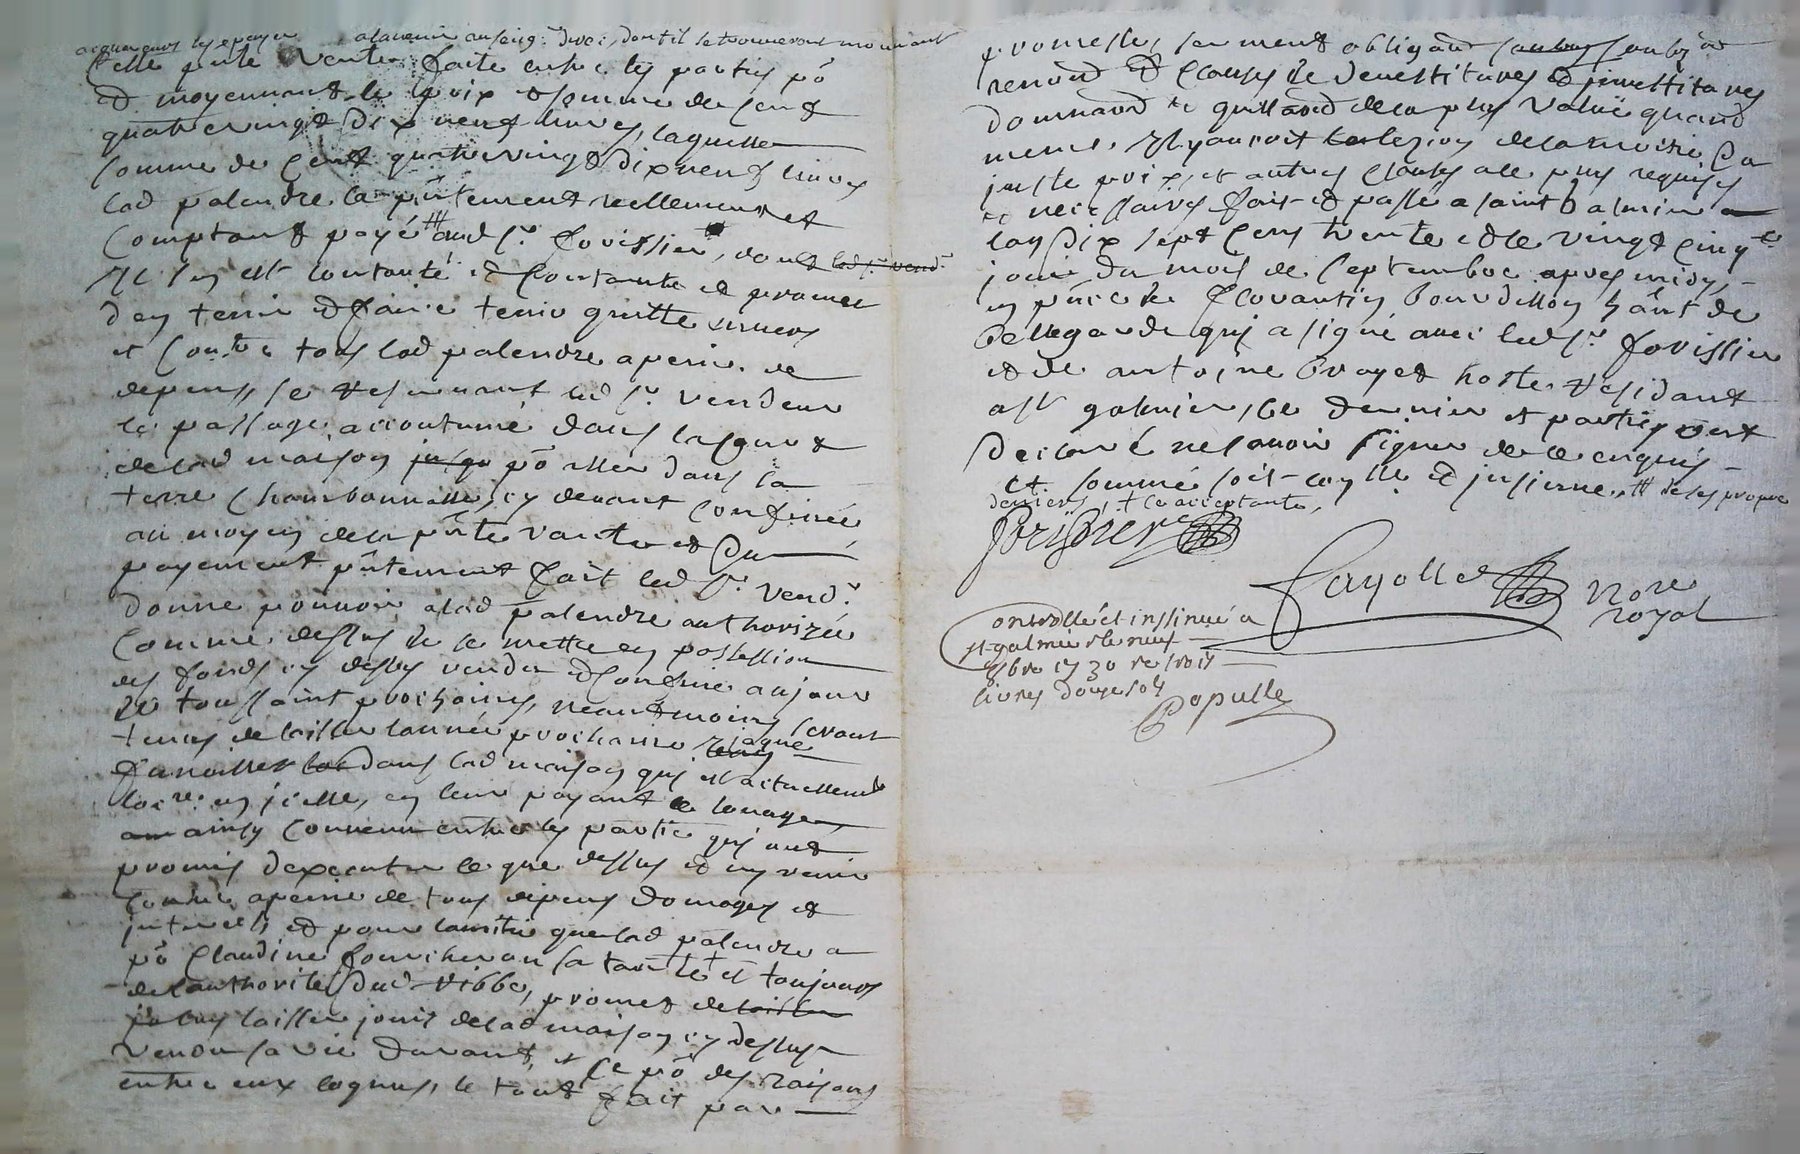 acquereurs les payer a lavenir au seig.r direc, dont il se trouveront mouvant
Celle pnte vente faite entre les parties po
et moyennant le prix et somme de cent
quatrevingt dix neuf livres, laquelle
somme de cent quatrevingt dix neuf livres
lad palendre la pntement reellement et
comptant payé aud s.r forissier, dont led s.r vend.r
il s'en est contanté et contante et promet
den tenir et faire tenir quitte envers
et contre tous lad palendre a peine de
depens, se reservant led s.r vendeur
le passage accoutumé dans lesquert
de lad maison jusqu po aller dans la
terre chambonnalle, cy devant confinée
au moyen de la pnte vante et du
payement pntement fait led s.r vend.r
donne pouvoir a lad palendre authorizée
comme dessus de se mettre en possession
des fonds cy dessus vendu et confiné au jour
de toussaint prochains, neantmoins seront
tenus de laisser lannée prochaine
dans lad maison qui est actuellement
loc.re en icelle, en leur payant le louage
ainsy convenu entre les partie qui ont
promis dexecuter ce que dessus et ny venir
contre a peine de tous depens domages et
interets et pour lamitié que lad palendre a
po Claudine fourcheron sa tante et toujours
de lauthorité dud ribbe, promet de laisser
laisser jouir de lad maison cy dessus
vendu sa vie durant, et ce po des raisons
entre eux cognus, le tout fait par
promesse, serment obligaon
renond et clauses de devestitures et investitures
donnaond et quittaond de la plus valuë quand
meme il y auroit lezion de la moitié du
juste prix, et autres clauses a ce plus requises
et necessaires fait et passé a saint Galmier
lan dix sept cens trente et le vingt cinq.e
jour du mois de septembre apres midy,
en pnce de florantin bourdillon hant de
bellegarde qui a signé avec led s.r forissier
et de antoine brayet hoste residant
a st galmier, ce dernier et parties ont
declaré ne savoir signer de ce enquis
et sommé soit controllé et insinué. de ses propre
deniers, + ce acceptante,
forissier
fayolle nore
royal
controllé et insinué a
st galmier le neuf
8bre 1730 re trois
livres douze sols
Populle